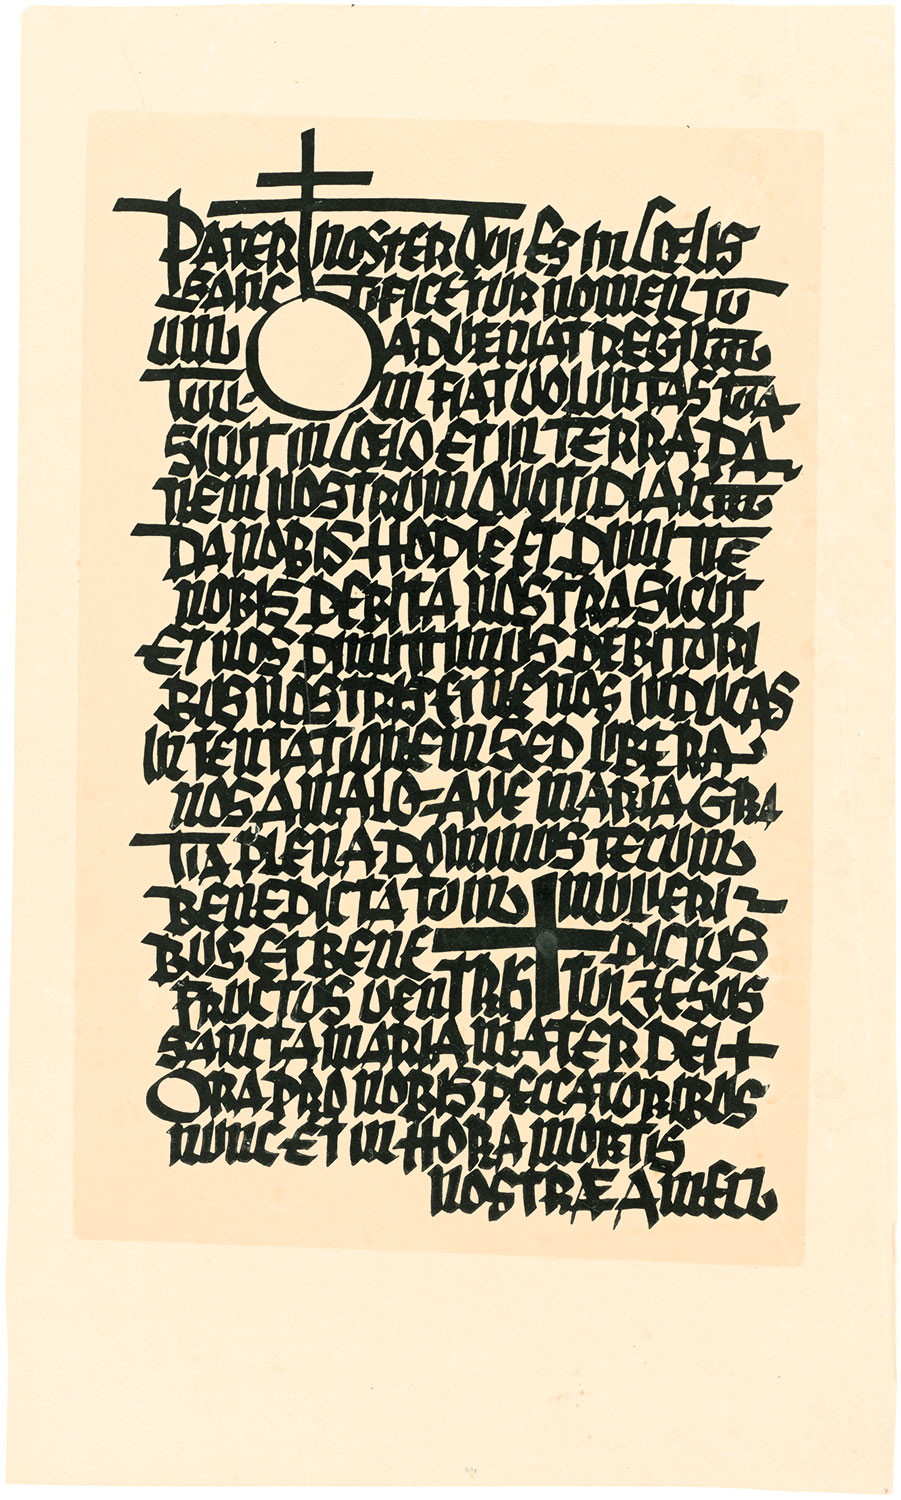 PATER NOSTER QUI ES IN CŒLIS
SANCTIFICETUR NOMEN TU
UM ADVENIAT REGNUM
TUU- M FIAT VOLUNTAS TUA
SICUT IN CŒLO ET IN TERRA PA
NEM NOSTRUM QUOTIDIANUM
DA NOBIS HODIE ET DIMITTE
NOBIS DEBITA NOSTRA SICUT
ET NOS DIMITTIMUS DEBITORI
BUS NOSTRIS ET NE NOS INDUCAS
IN TENTATIONEM SED LIBERA
NOS A MALO-AVE MARIA GRA
TIA PLENA DOMINUS TECUM
BENEDICTA TU IN MULIERI-
BUS ET BENEDICTUS
FRUCTUS VENTRIS TUI JESUS
SANCTA MARIA MATER DEI +
ORA PRO NOBIS PECCATORIBUS
NUNC ET IN HORA MORTIS
NOSTRÆ AMEN